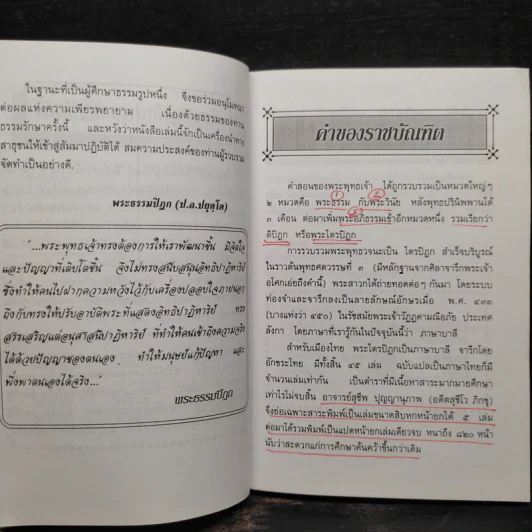 ในฐานะที่เป็นผู้ศึกษาธรรมรูปหนึ่ง จึงขอร่วมอนุโมทนา
ต่อผลแห่งความเพียรพยายาม เนื่องด้วยธรรมของท่าน
ธรรมรักษาครั้งนี้ และหวังว่าหนังสือเล่มนี้จักเป็นเครื่องนำทาง
สาธุชนให้เข้าสู่สัมมาปฏิบัติได้ สมความประสงค์ของท่านผู้รวบรวม
จัดทำเป็นอย่างดี.
พระธรรมปิฎก (ป.อ.ปยุตฺโต)
"...พระพุทธเจ้าทรงต้องการให้เราพัฒนาขึ้น มีจิตใจ
และปัญญาที่เติบโตขึ้น จึงไม่ทรงสนับสนุนอิทธิปาฏิหาริย์
ซึ่งทำให้คนไปฝากความหวังไว้กับเครื่องปลอบใจภายนอก
ทรงให้ปรับอาบัติพระที่แสดงอิทธิปาฏิหาริย์ ทรง
สรรเสริญแต่อนุสาสนีปาฏิหาริย์ ที่ทำให้คนเข้าถึงความจริง
ได้ด้วยปัญญาของตนเอง ทำให้มนุษย์แก้ปัญหา และ
พึ่งพาตนเองได้จริง..."
พระธรรมปิฎก
คำของราชบัณฑิต
คำสอนของพระพุทธเจ้า ได้ถูกรวบรวมเป็นหมวดใหญ่ๆ
๒ หมวดคือ พระธรรม กับพระวินัย หลังพุทธปรินิพพานได้
๓ เดือน ต่อมาเพิ่มพระอภิธรรมเข้าอีกหมวดหนึ่ง รวมเรียกว่า
ติปิฎก หรือพระไตรปิฎก
การรวบรวมพระพุทธวจนะเป็น ไตรปิฎก สำเร็จบริบูรณ์
ในราวต้นพุทธศตวรรษที่ ๓ (มีหลักฐานจากศิลาจารึกพระเจ้า
อโศกเอ่ยถึงคำนี้) พระสาวกได้ถ่ายทอดต่อๆ กันมา โดยระบบ
ท่องจำและจารึกลงเป็นลายลักษณ์อักษรเมื่อ พ.ศ. ๔๓๓
(บางแห่งว่า ๔๕๐) ในรัชสมัยพระเจ้าวัฏฏคามณีอภัย ประเทศ
ลังกา โดยภาษาที่เรารู้กันในปัจจุบันนี้ว่า ภาษาบาลี
สำหรับเมืองไทย พระไตรปิฎกเป็นภาษาบาลี จารึกโดย
อักขระไทย มีทั้งสิ้น ๔๕ เล่ม ฉบับแปลเป็นภาษาไทยก็มี
จำนวนเล่มเท่ากัน เป็นตำราที่มีเนื้อหาสาระมากมายศึกษา
เท่าไรไม่จบสิ้น อาจารย์สุชีพ ปุญญานุภาพ (อดีตสุชีโว ภิกขุ)
จึงย่อเฉพาะสาระพิมพ์เป็นเล่มขนาดสิบหกหน้ายกได้ ๕ เล่ม
ต่อมาได้รวมพิมพ์เป็นแปดหน้ายกเล่มเดียวจบ หนาถึง ๘๒๐ หน้า
นับว่าสะดวกแก่การศึกษาค้นคว้าขึ้นกว่าเดิม